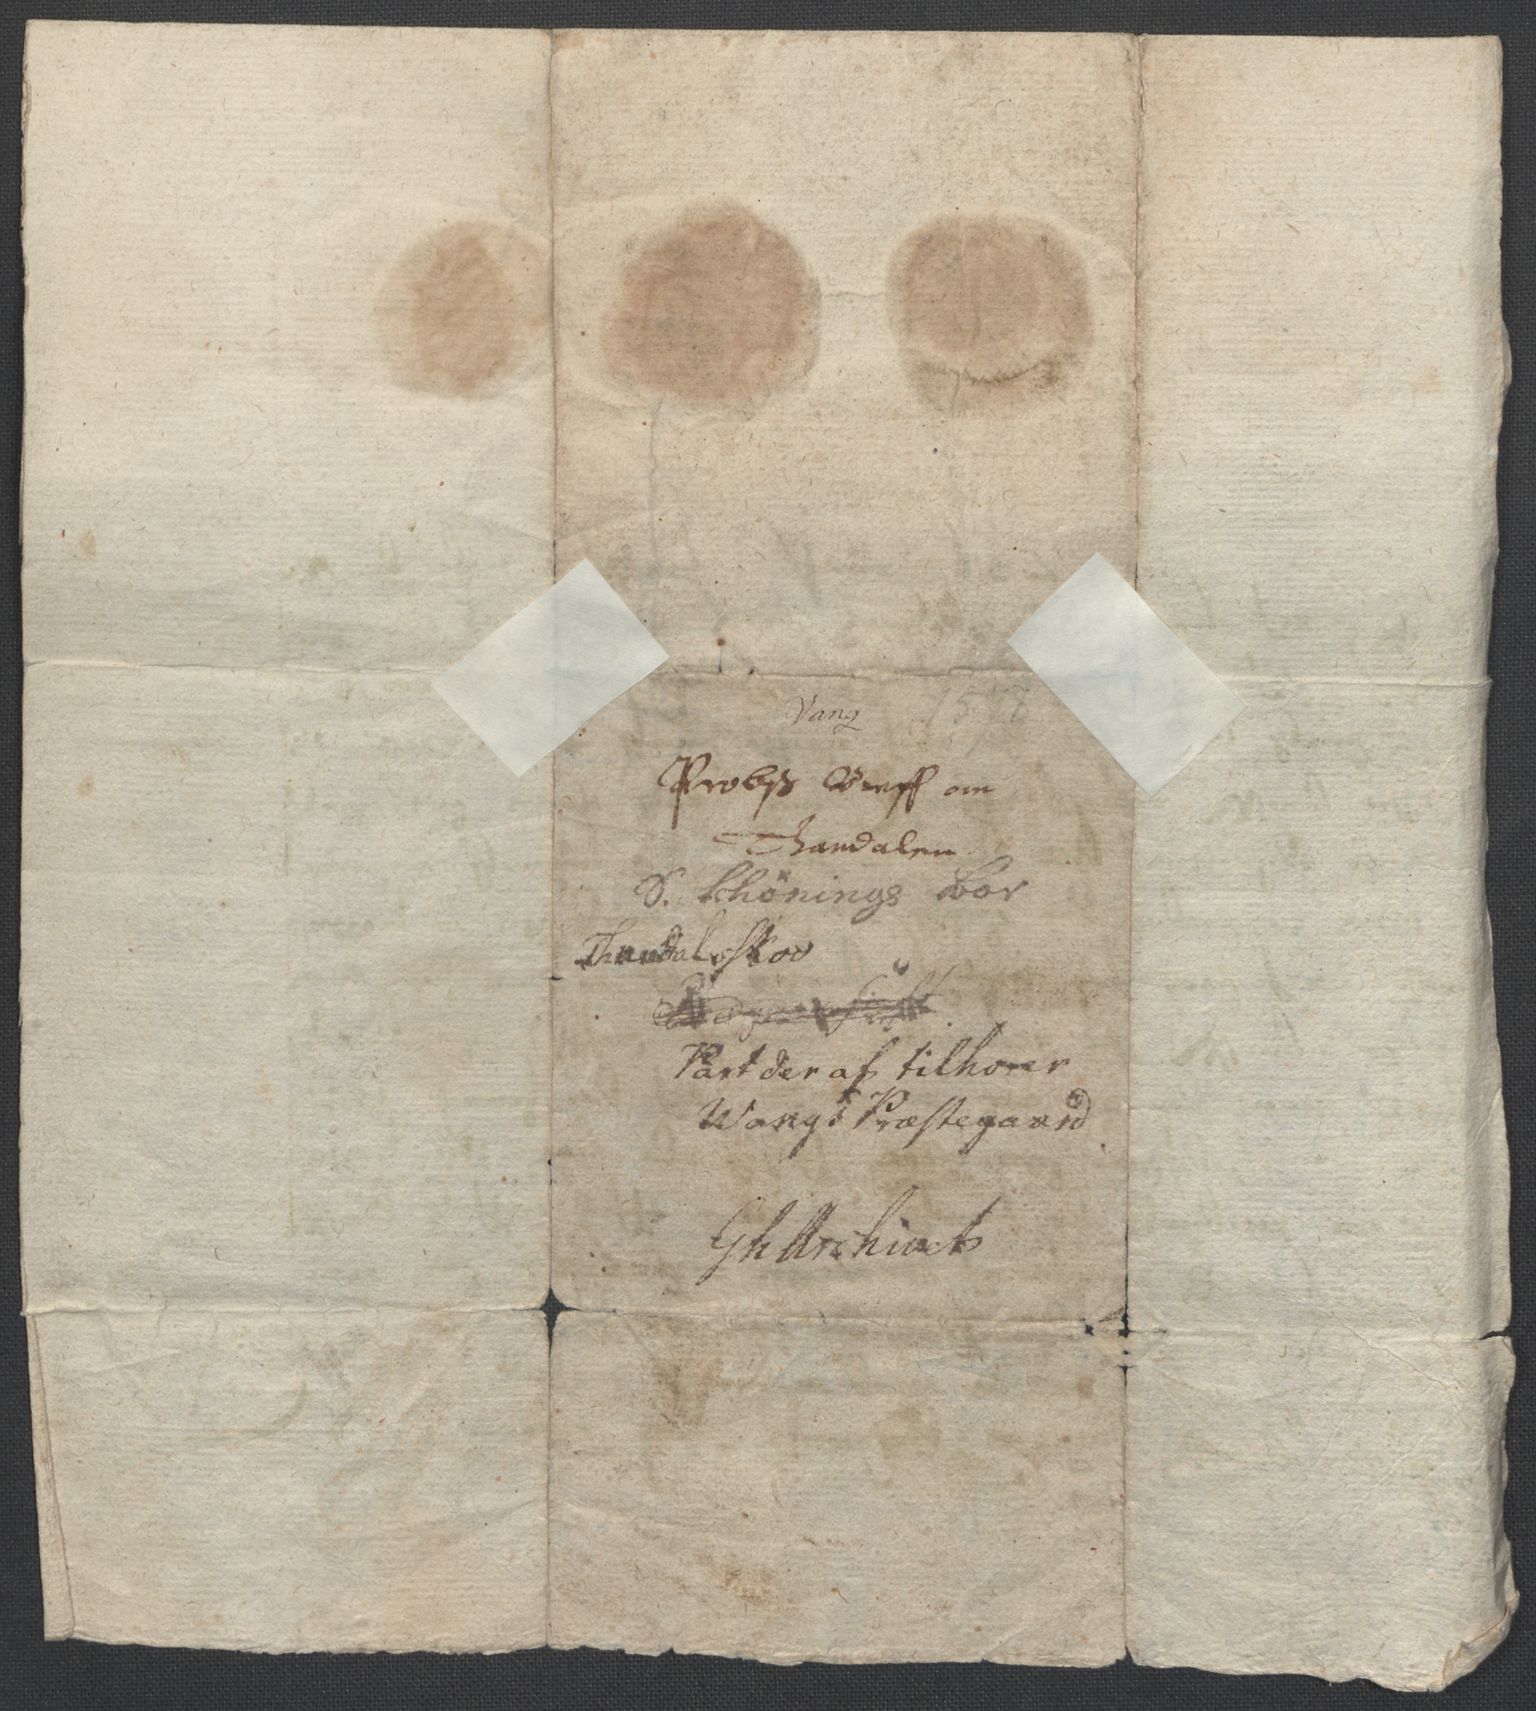 Vang 1578
Probst breff om
Thandalen
S. schönings bor
Thandalsskov
Part der af tilhorer
Wangs Præstegaard
Gh Archivet